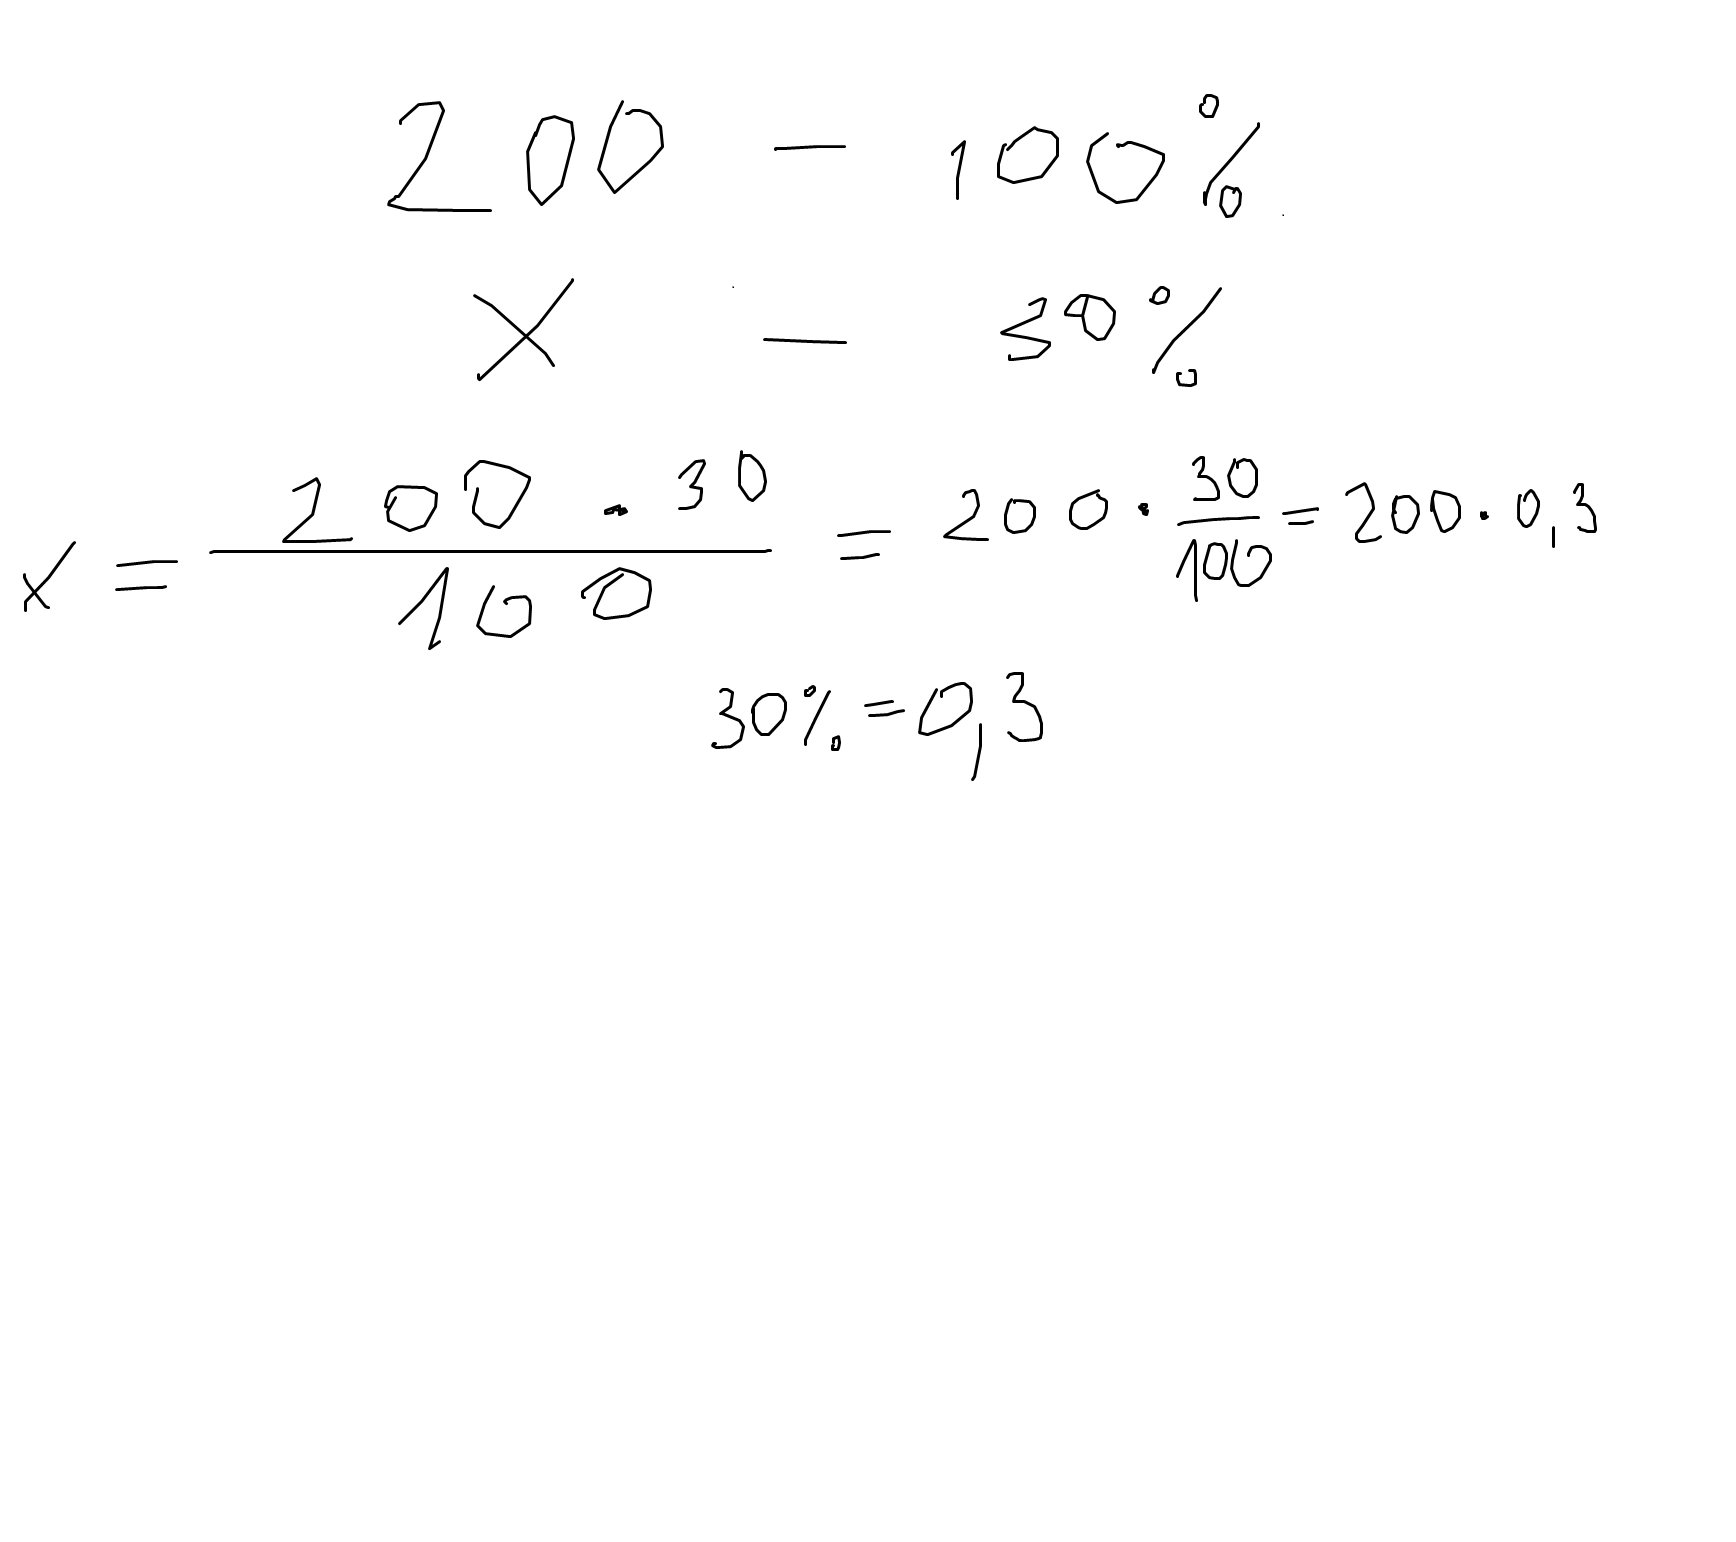 200 — 100%
x — 30%
x = 200 · 30 / 100 = 200 · 30/100 = 200 · 0,3
30% = 0,3